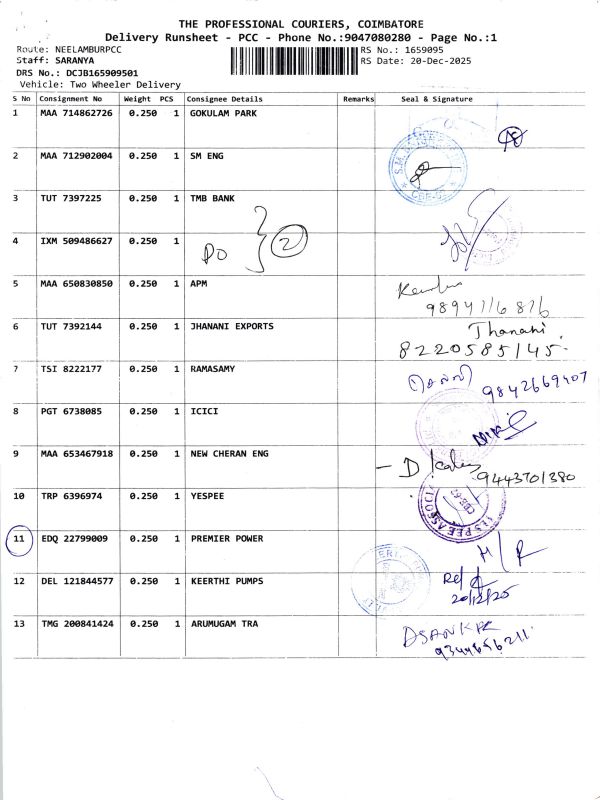 THE PROFESSIONAL COURIERS, COIMBATORE
Delivery Runsheet - PCC - Phone No.:9047080280 - Page No.:1
Route: NEELAMBURPCC
RS No.: 1659095
Staff: SARANYA
RS Date: 20-Dec-2025
DRS No.: DCJB165909501
Vehicle: Two Wheeler Delivery
S No Consignment No Weight PCS Consignee Details Remarks Seal & Signature
1 MAA 714862726 0.250 1 GOKULAM PARK
2 MAA 712902004 0.250 1 SM ENG
3 TUT 7397225 0.250 1 TMB BANK
4 IXM 509486627 0.250 1 DO 2
5 MAA 650830850 0.250 1 APM
6 TUT 7392144 0.250 1 JHANANI EXPORTS Jhanani
8220585145
7 TSI 8222177 0.250 1 RAMASAMY 9842669407
8 PGT 6738085 0.250 1 ICICI
9 MAA 653467918 0.250 1 NEW CHERAN ENG 9443701380
10 TRP 6396974 0.250 1 YESPEE
11 EDQ 22799009 0.250 1 PREMIER POWER
12 DEL 121844577 0.250 1 KEERTHI PUMPS
20/12/25
13 TMG 200841424 0.250 1 ARUMUGAM TRA